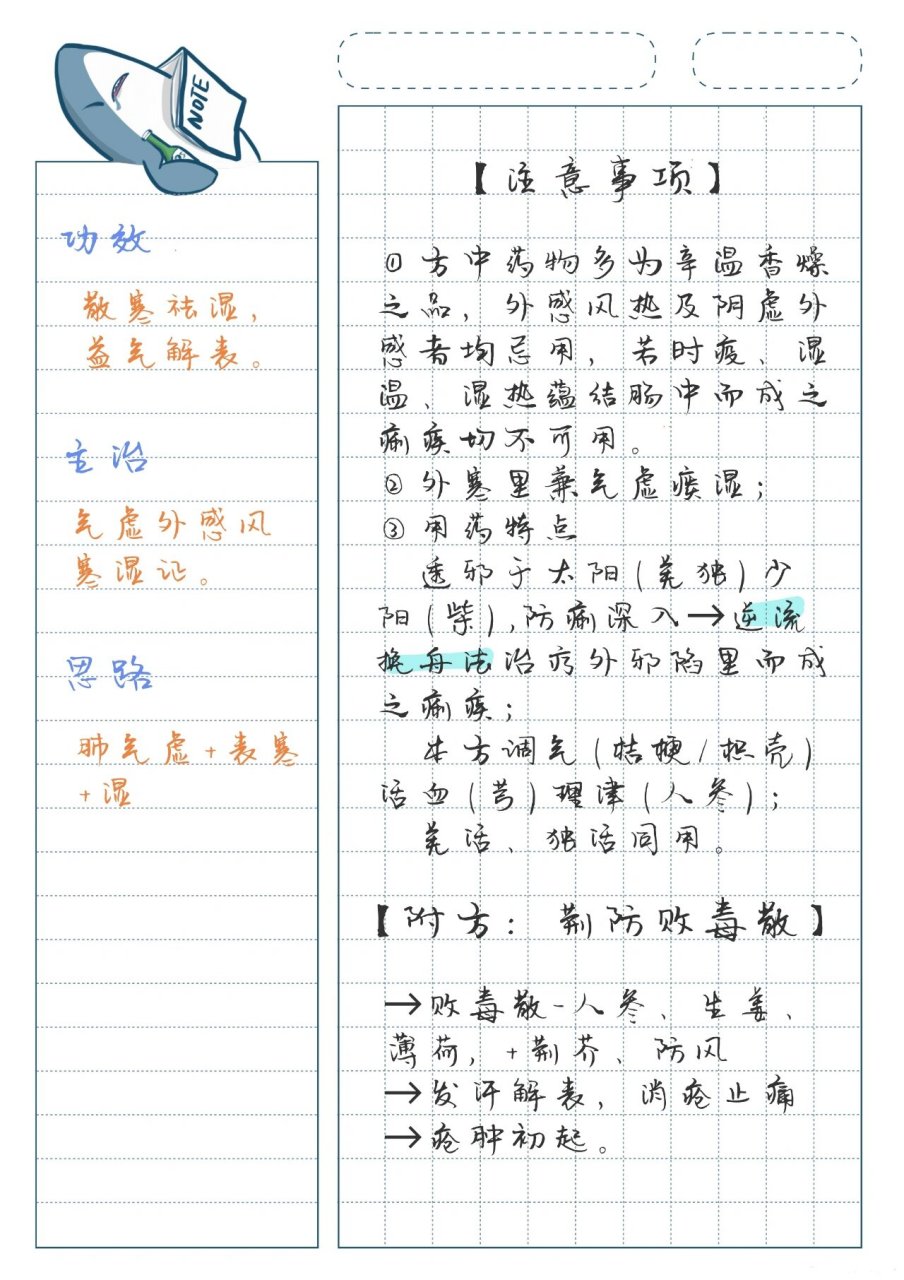 NOTE
功效
散寒祛湿，
益气解表。
主治
气虚外感风
寒湿记。
思路
肺气虚+表寒
+湿
【注意事项】
① 方中药物多为辛温香燥
之品，外感风热及阴虚外
感者均忌用，若时疫、湿
温、湿热蕴结肠中而成之
痢疾切不可用。
② 外寒里兼气虚痰湿；
③ 用药特点
透邪于太阳(羌独)少
阳(柴),防痢深入→逆流
挽舟法治疗外邪陷里而成
之痢疾；
本方调气(桔梗/枳壳)
活血(芎)理津(人参)；
羌活、独活同用。
【附方：荆防败毒散】
→败毒散-人参、生姜、
薄荷，+荆芥、防风
→发汗解表，消疮止痛
→疮肿初起。